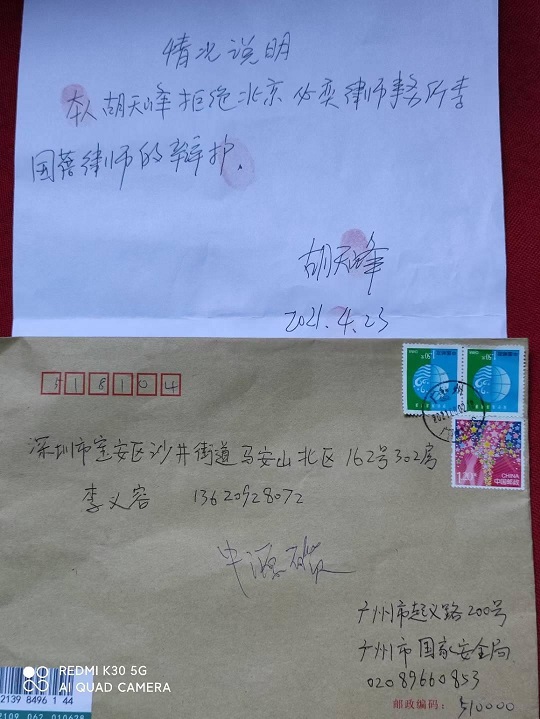 情况说明
本人胡天峰拒绝北京必奕律师事务所李
国蓓律师的辩护.
胡天峰
2021.4.23
518104
深圳市宝安区沙井街道马安山北区162号302房
李义容 13620928072
CHINA
1.20元
中国邮政
广州市起义路200号
广州市国家安全局
02089660853
邮政编码: 510000
REDMI K30 5G
AI QUAD CAMERA
2139 8496 1 44